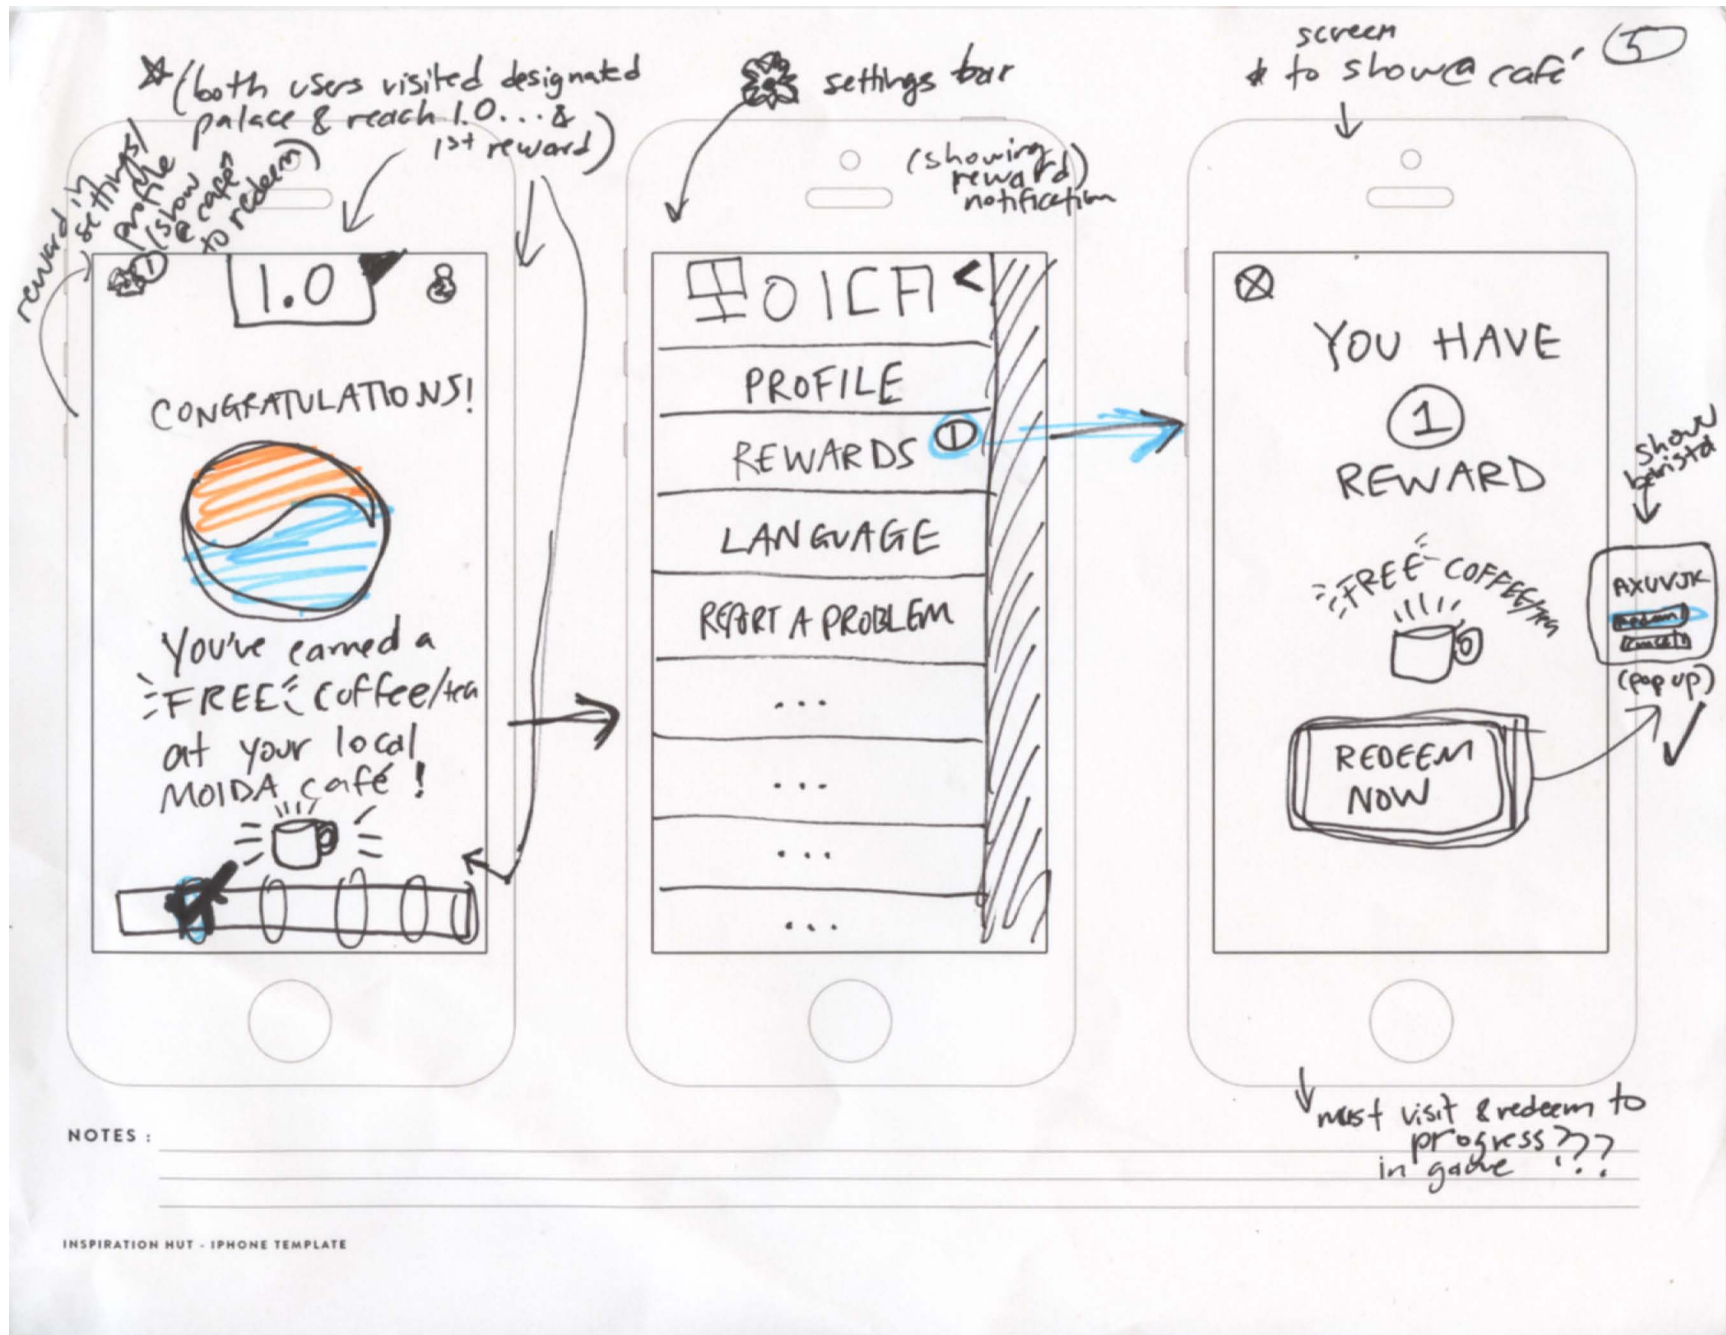 ☆(both users visited designated
palace & reach 1.0...&
1st reward)
reward in
settings/
profile
(show
@ café
to redeem)
1
1.0
2
CONGRATULATIONS!
You've earned a
FREE coffee/tea
at your local
MOIDA café!
settings bar
(showing
reward)
notification
PROFILE
REWARDS 1
LANGUAGE
REPORT A PROBLEM
...
...
...
...
5
screen
* to show @ café
YOU HAVE
1
REWARD
FREE COFFEE/tea
REDEEM
NOW
show
barista
AXUVJK
redeem
(pop up)
must visit & redeem to
progress???
in game
NOTES :
INSPIRATION HUT - IPHONE TEMPLATE